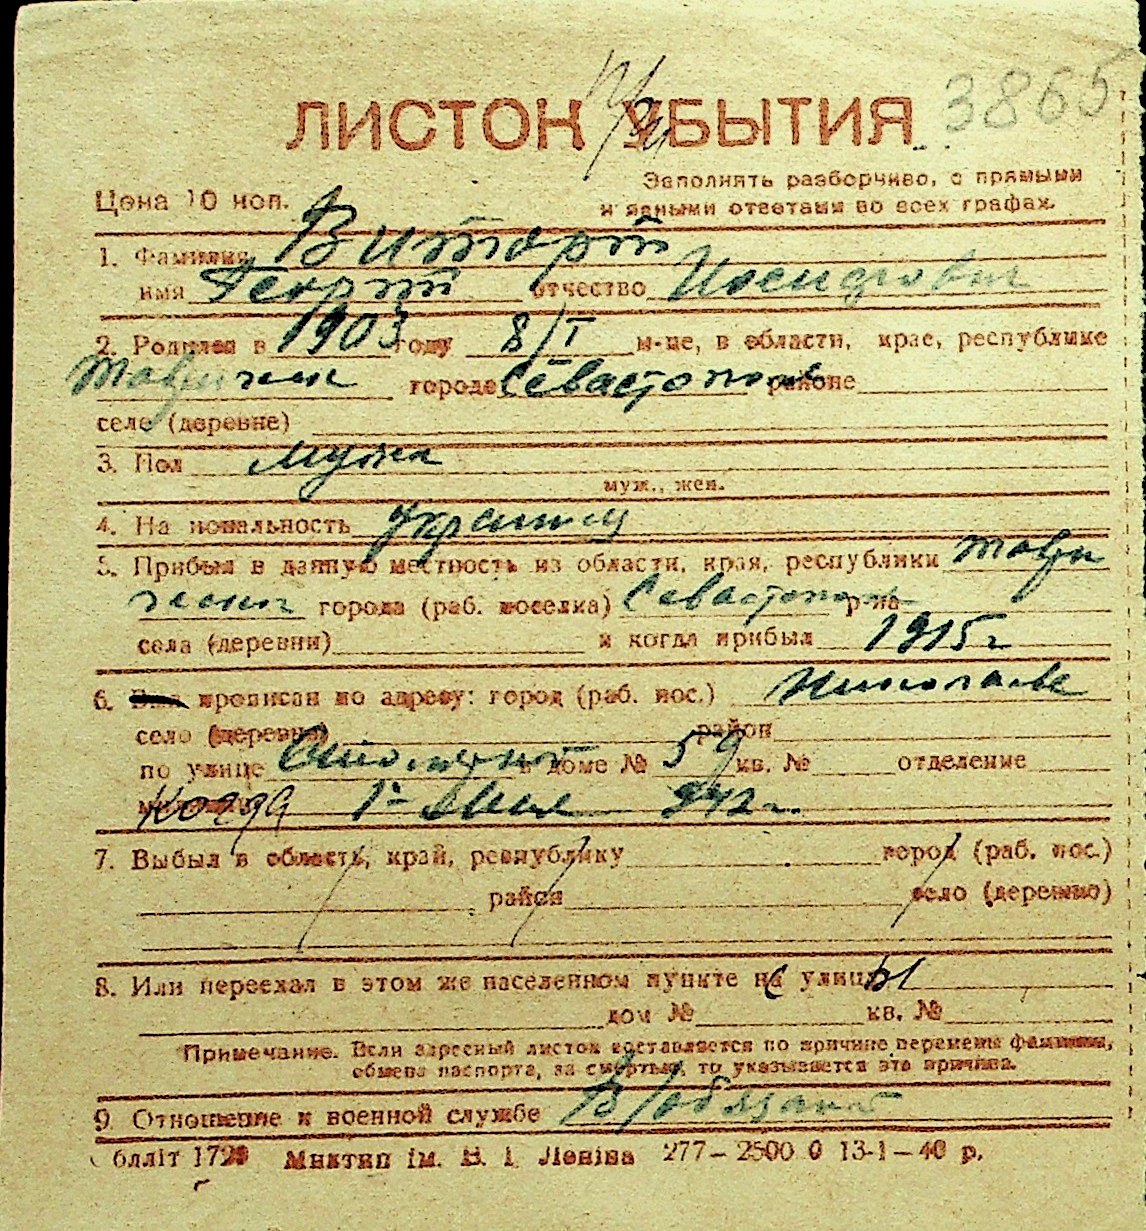 3865
ЛИСТОК УБЫТИЯ
Цена 10 коп.
Заполнять разборчиво, с прямыми
и ясными ответами во всех графах.
1. Фамилия Витторт
имя Георгий отчество Иосифович
2. Родился в 1903 году 8/I м-це, в области, крае, республике
Таврическ городе Севастополь районе
селе (деревне)
3. Пол Мужск
муж., жен.
4. Национальность украинец
5. Прибыл в данную местность из области, края, республики Таври
ческой города (раб. поселка) Севастополь р-на
села (деревни) и когда прибыл 1915 г
6. прописан по адресу: город (раб. пос.) Николаев
село (деревня) район
по улице в доме № 59 кв. № отделение
Когда 1- Мая 942 г.
7. Выбыл в область, край, республику город (раб. пос.)
район село (деревню)
8. Или переехал в этом же населенном пункте с улицы
дом № кв. №
Примечание. Если адресный листок составляется по причине перемены фамилии,
обмена паспорта, за смертью, то указывается эта причина.
9. Отношение к военной службе В/обязан
блліт 1720 Миктип ім. В. І. Леніна 277–2500 0 13-1–40 р.